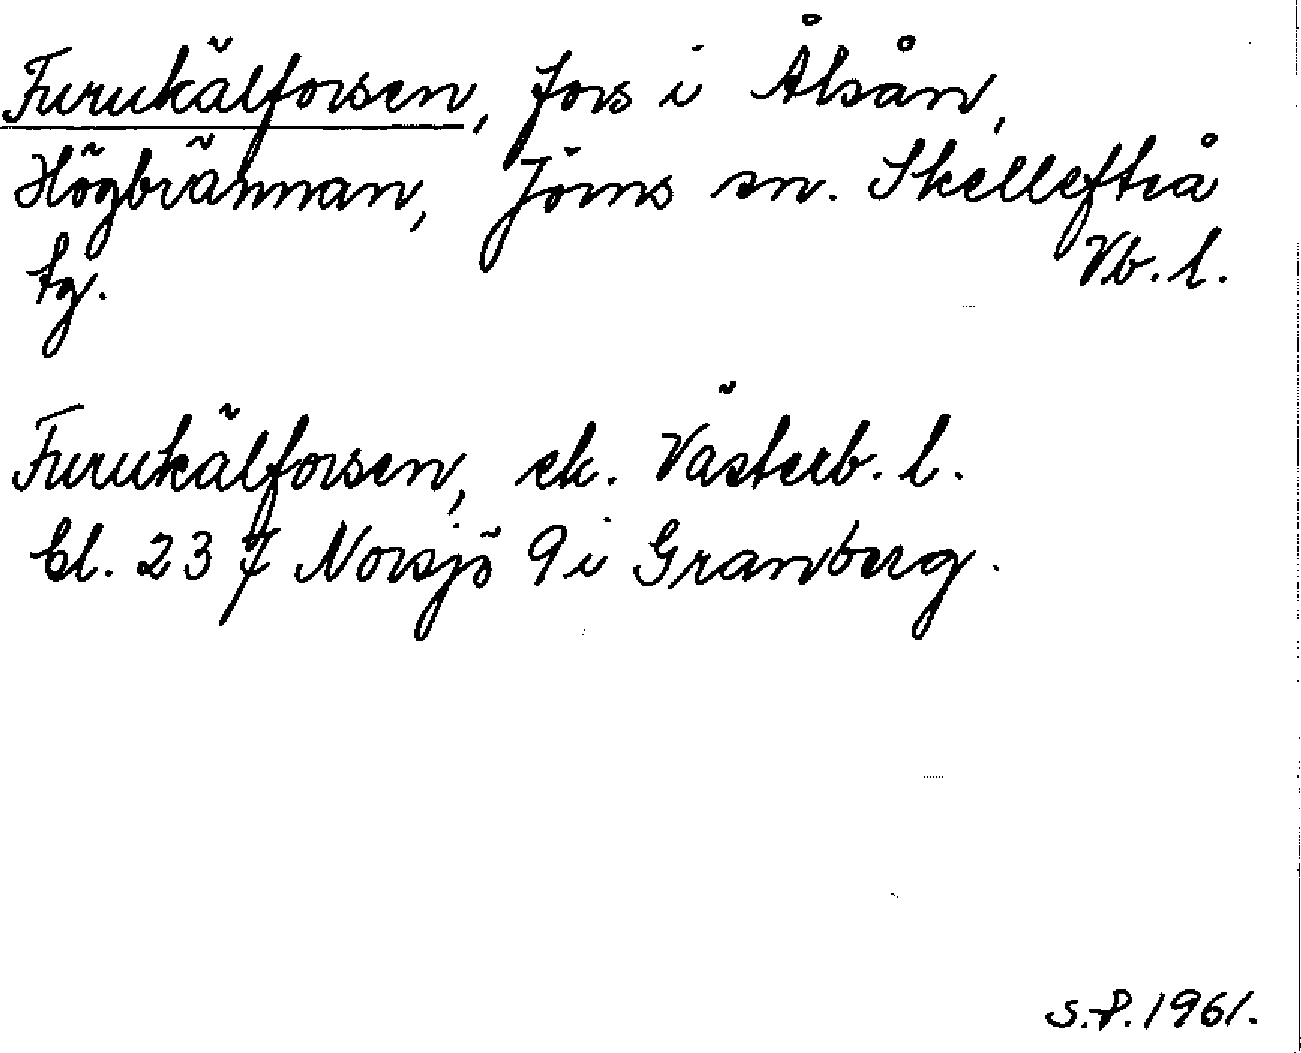 Furukälforsen, fors i Ålsån,
Högbrännan, Jörns sn. Skellefteå
tg. Vb. l.
Furukälforsen, ek. Västerb. l.
bl. 23 J Norsjö 9 i Granberg.
S.P. 1961.